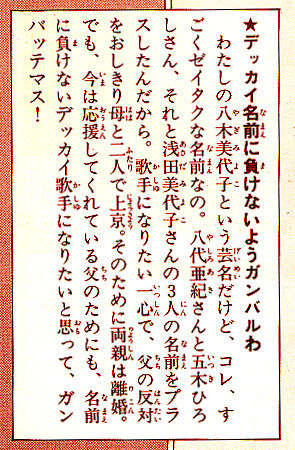 ★デッカイ名前に負けないようガンバルわ
わたしの八木美代子という芸名だけど、コレ、す
ごくゼイタクな名前なの。八代亜紀さんと五木ひろ
しさん、それと浅田美代子さんの3人の名前をプラ
スしたんだから。歌手になりたい一心で、父の反対
をおしきり母と二人で上京。そのために両親は離婚。
でも、今は応援してくれている父のためにも、名前
に負けないデッカイ歌手になりたいと思って、ガン
バッテマス！